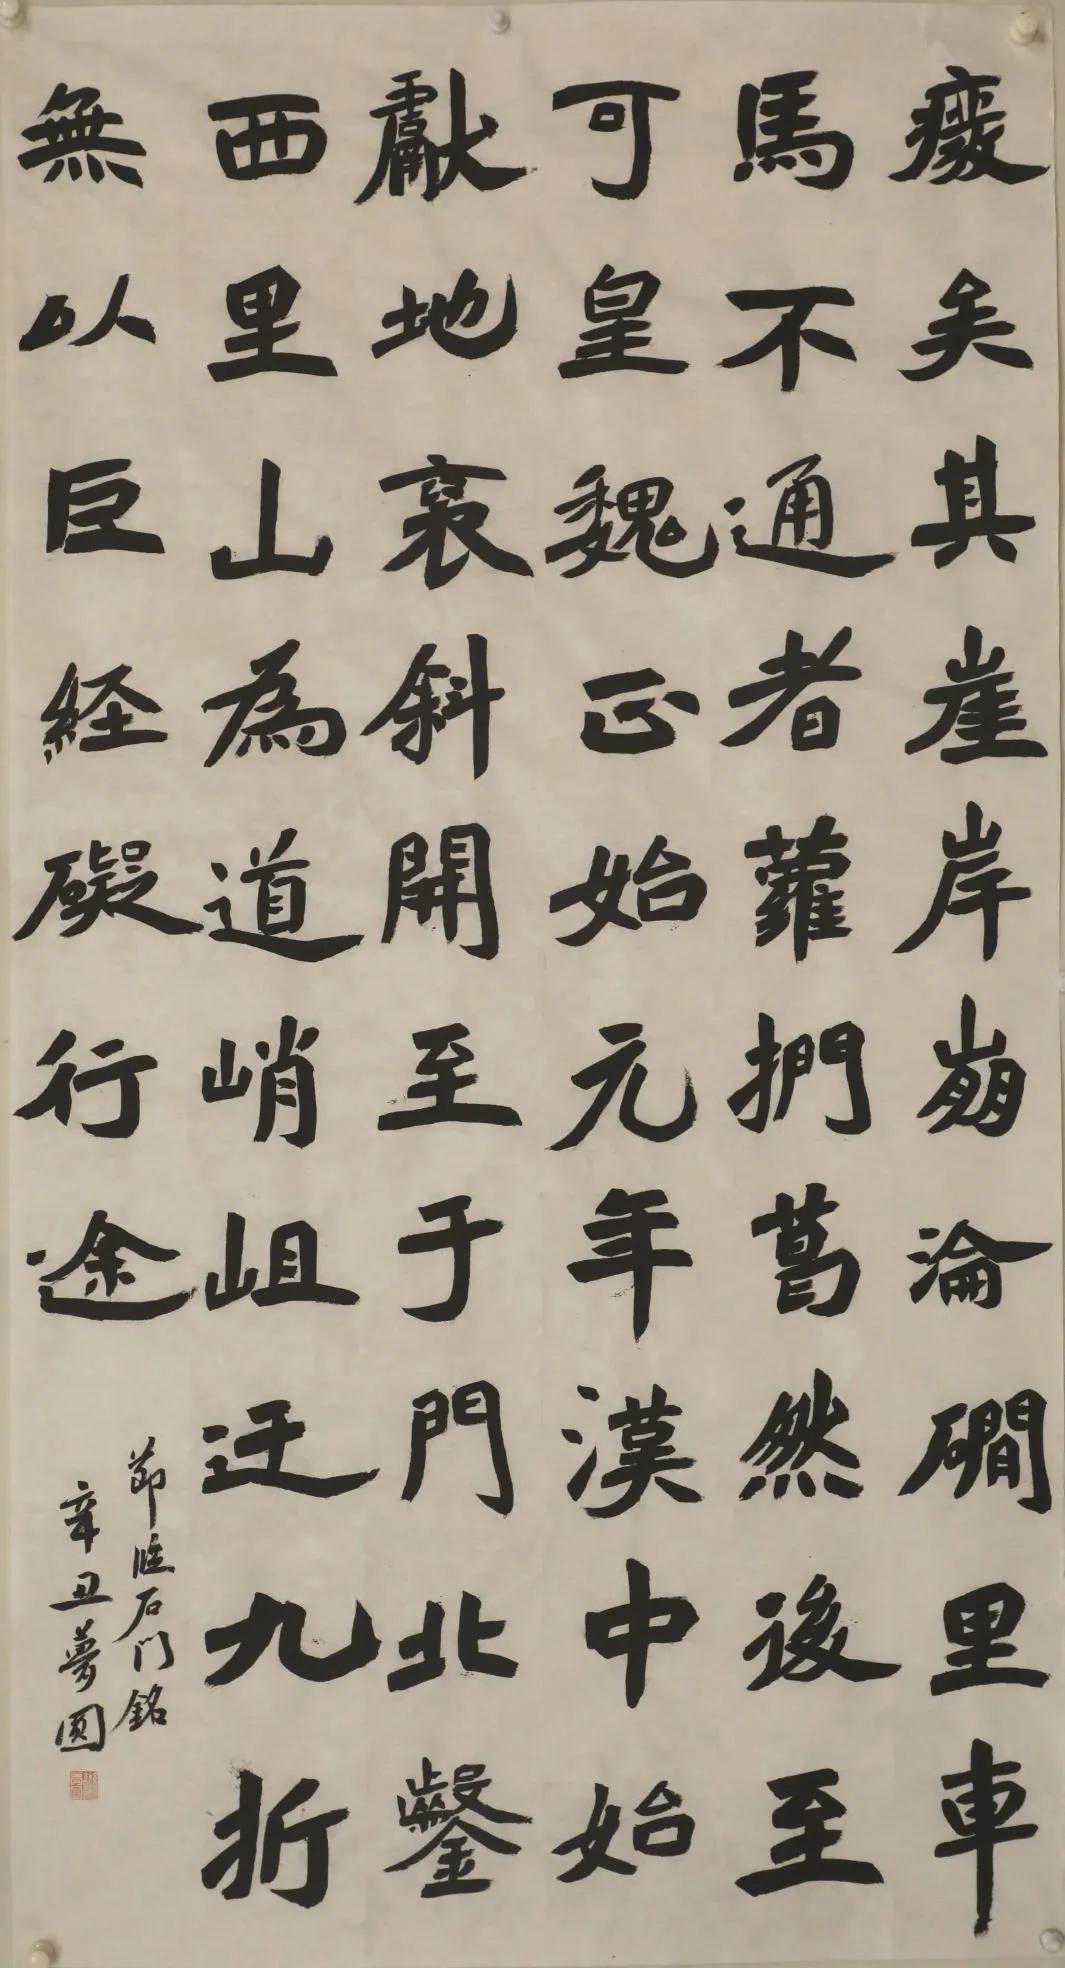 癈矣其崖岸崩淪磵里車
馬不通者蘿捫葛然後至
可皇魏正始元年漢中始
獻地褒斜開至于門北鑿
西里山為道峭岨迂九折
無以巨経礙行途
節臨石門銘
辛丑夢圓